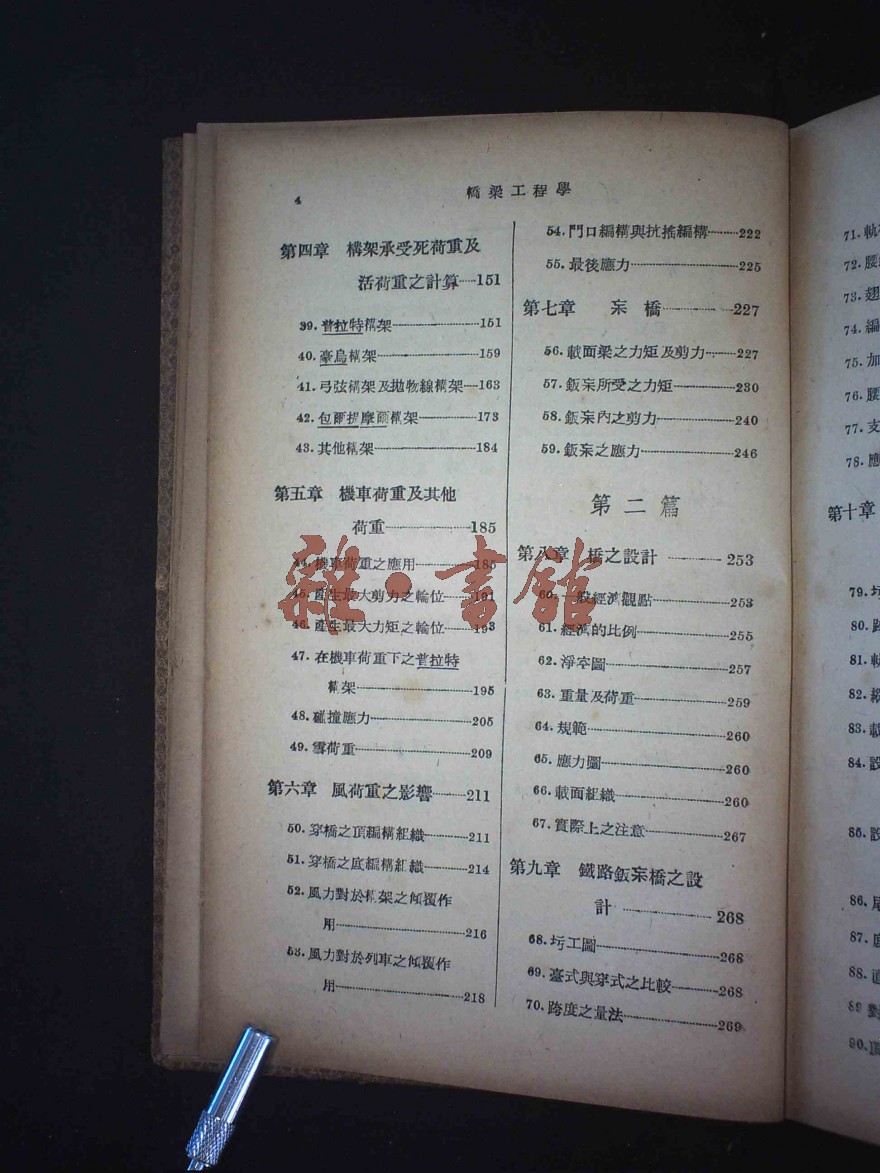 4
橋梁工程學
第四章 構架承受死荷重及
活荷重之計算 151
39. 普拉特構架 151
40. 豪烏構架 159
41. 弓弦構架及拋物線構架 163
42. 包爾提摩爾構架 173
43. 其他構架 184
第五章 機車荷重及其他
荷重 185
44. 機車荷重之應用 185
45. 產生最大剪力之輪位 191
46. 產生最大力矩之輪位 193
47. 在機車荷重下之普拉特
構架 195
48. 碰撞應力 205
49. 雪荷重 209
第六章 風荷重之影響 211
50. 穿橋之頂編構組織 211
51. 穿橋之底編構組織 214
52. 風力對於構架之傾覆作
用 216
53. 風力對於列車之傾覆作
用 218
54. 門口編構與抗搖編構 222
55. 最後應力 225
第七章 桒橋 227
56. 載面梁之力矩及剪力 227
57. 鈑桒所受之力矩 230
58. 鈑桒內之剪力 240
59. 鈑桒之應力 246
第二篇
第八章 橋之設計 253
60. 一般經濟觀點 253
61. 經濟的比例 255
62. 淨空圖 257
63. 重量及荷重 259
64. 規範 260
65. 應力圖 260
66. 載面組織 260
67. 實際上之注意 267
第九章 鐵路鈑桒橋之設
計 268
68. 圬工圖 268
69. 臺式與穿式之比較 268
70. 跨度之量法 269
71. 軌
72. 腰
73. 翅
74. 編
75. 加
76. 腰
77. 支
78. 應
第十章
79. 圬
80. 跨
81. 軌
82. 縱
83. 載
84. 設
85. 設
86. 尾
87. 底
88. 道
89 對
90. 頂
雜·書館